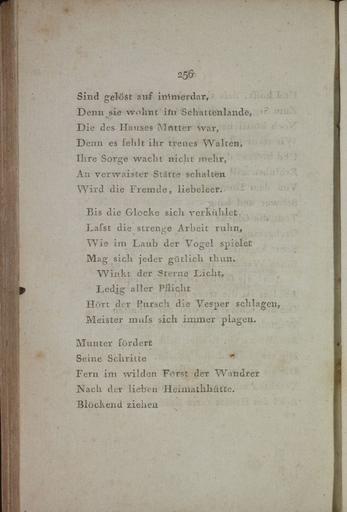 256
Sind gelöst auf immerdar,
Denn sie wohnt im Schattenlande,
Die des Hauses Mutter war,
Denn es fehlt ihr treues Walten,
Ihre Sorge wacht nicht mehr,
An verwaister Stätte schalten
Wird die Fremde, liebeleer.
Bis die Glocke sich verkühlet
Laſst die strenge Arbeit ruhn,
Wie im Laub der Vogel spielet
Mag sich jeder gütlich thun.
Winkt der Sterne Licht,
Ledig aller Pflicht
Hört der Pursch die Vesper schlagen,
Meister muſs sich immer plagen.
Munter fördert
Seine Schritte
Fern im wilden Forst der Wandrer
Nach der lieben Heimathhütte.
Blöckend ziehen